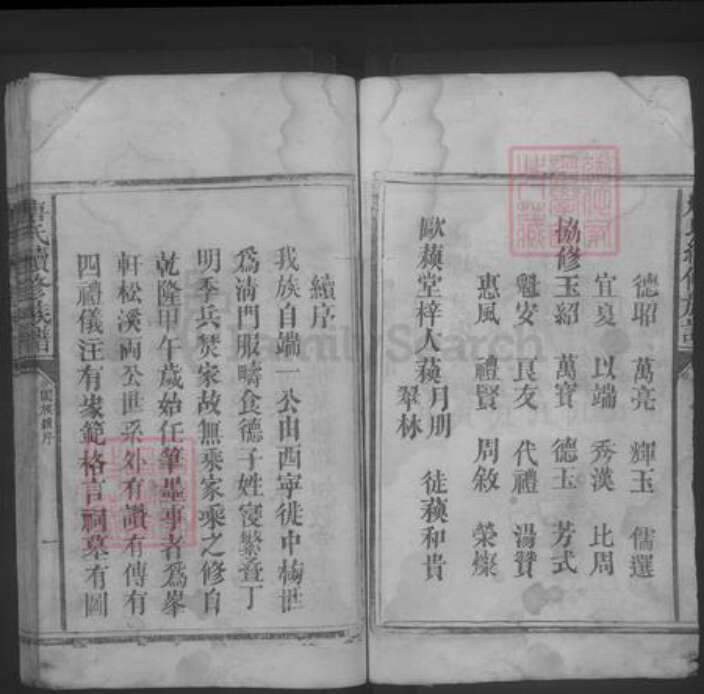 德昭 萬亮 輝玉 儒選
宜夏 以端 秀漢 比周
協修玉紹 萬寶 德玉 芳式
魁安 良友 代禮 湯贊
惠風 禮賢 周敘 榮燦
歐蘋堂梓人蘋月朋 翠林 徒蘋和貴
續序
我族自端一公由西寧徙中梅世
為清門服疇食德子姓寖繁查丁
明季兵焚家故無乘家乘之修自
乾隆甲午歲始任筆墨事者為峯
軒松溪兩公世系外有讚有傳有
四禮儀注有家範格言祠墓有圖
氏續修族譜
一
FamilySearch